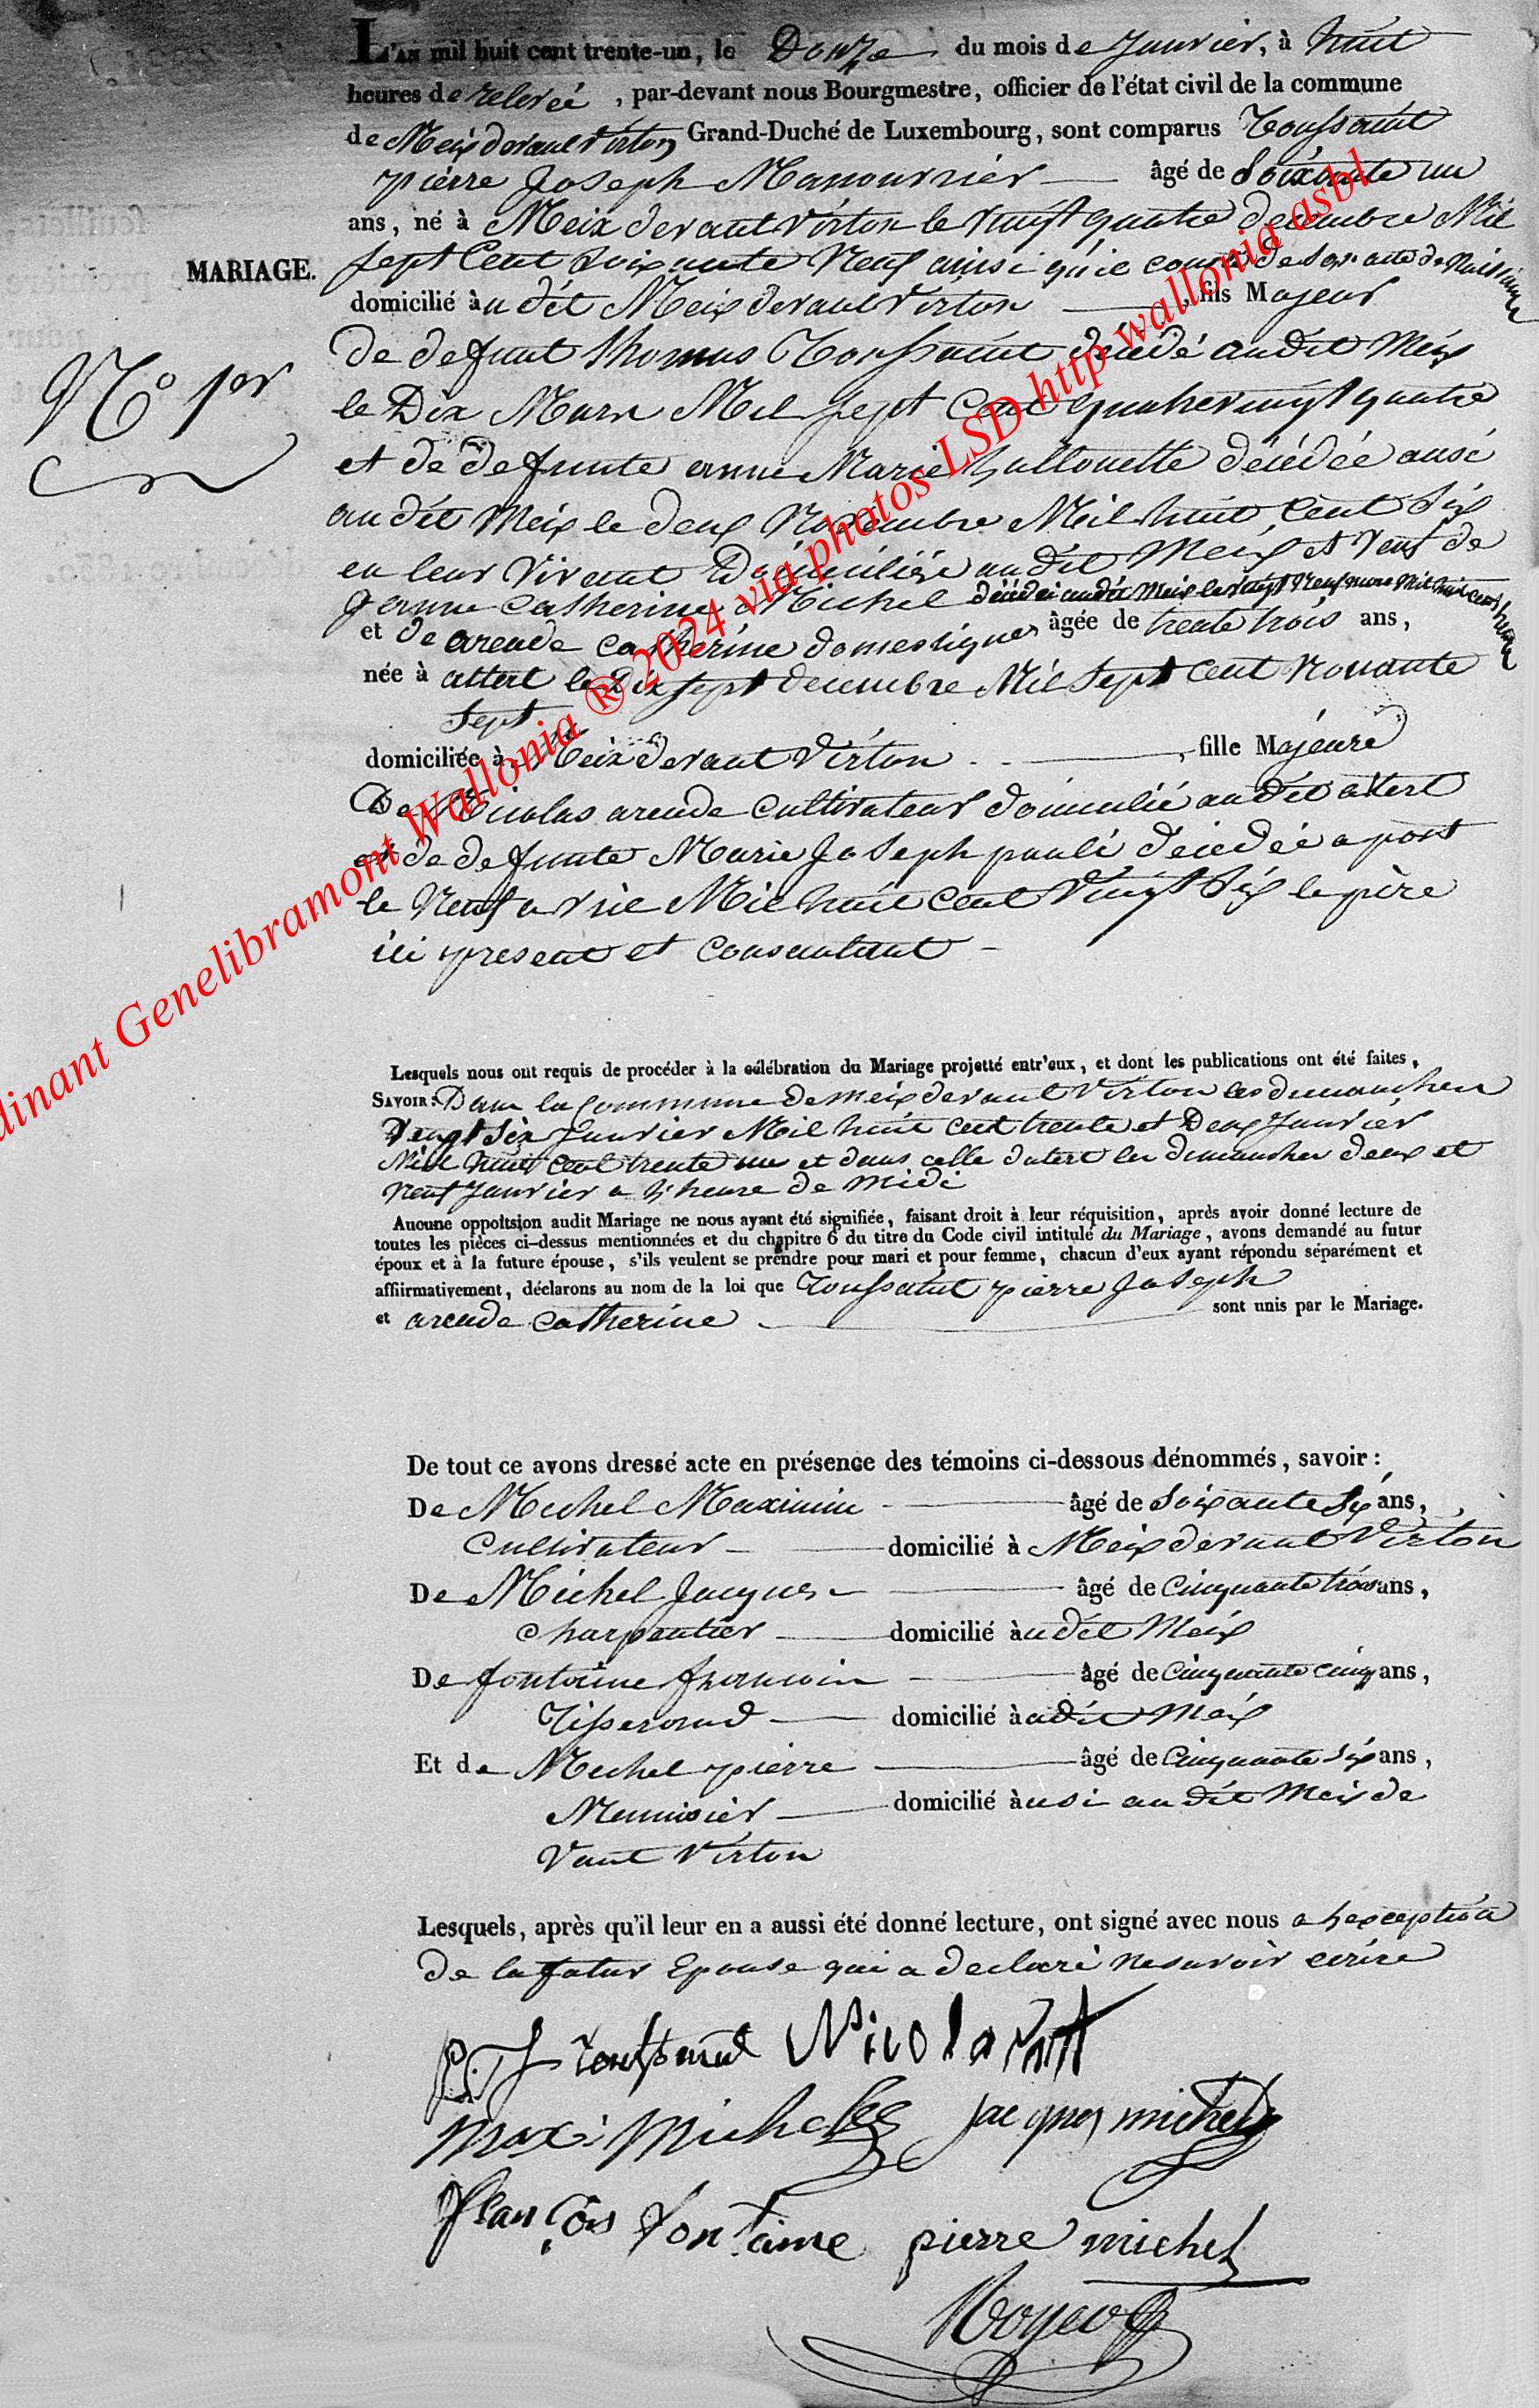 L'AN mil huit cent trente-un, le Douze du mois de Janvier, à huit
heures de relevée, par-devant nous Bourgmestre, officier de l'état civil de la commune
de Meix devant Virton Grand-Duché de Luxembourg, sont comparus Toussaint
pierre Joseph Manouvrier âgé de Soixante un
ans, né à Meix devant Virton le vingt quatre decembre Mil
MARIAGE.
sept Cent soixante Neuf ainsi qu'il conste de son acte de Naissance
domicilié au dit Meix devant Virton, fils Majeur
N° 1er
De defunt thomas Toussaint décédé audit Meix
le Dix Mars Mil sept Cent quatrevingt quatre
et de defunte anne Marie hallouette décédée ausi
au dit Meix le deux Novembre Mil huit Cent Six
en leur Vivant Domiciliés au dit Meix et Veuf de
Jeanne Catherine Michel décédée audit Meix le vingt Neuf mars Mil huit cent
et de arende Catherine domestique âgée de trente trois ans,
née à attert le Dix sept decembre Mil Sept Cent Nonante
Sept
domiciliée à Meix devant Virton, fille Majeure
De Nicolas arende cultivateur domicilié au dit attert
et de defunte Marie Joseph pauli décédée a post
le Neuf avril Mil huit Cent Vingt Six le père
ici present et Consentant
Lesquels nous ont requis de procéder à la célébration du Mariage projetté entr'eux, et dont les publications ont été faites,
SAVOIR: Dans la Commune de Meix devant Virton les dimanches
Vengt Six Janvier Mil huit cent trente et Deux Janvier
Mil huit Cent trente un et dans celle datert les dimanches deux et
Neuf Janvier a l'heure de midi
Aucune oppoitsion audit Mariage ne nous ayant été signifiée, faisant droit à leur réquisition, après avoir donné lecture de
toutes les pièces ci-dessus mentionnées et du chapitre 6 du titre du Code civil intitulé du Mariage, avons demandé au futur
époux et à la future épouse, s'ils veulent se prendre pour mari et pour femme, chacun d'eux ayant répondu séparément et
affiirmativement, déclarons au nom de la loi que Toussaint pierre Joseph
et arende Catherine sont unis par le Mariage.
De tout ce avons dressé acte en présence des témoins ci-dessous dénommés, savoir:
De Michel Maximin âgé de soixante Six ans,
Cultivateur domicilié à Meix devant Virton
De Michel Jacques âgé de Cinquante trois ans,
Charpentier domicilié au dit Meix
De fontaine francois âgé de Cinquante cinq ans,
Tisserand domicilié au dit Meix
Et de Michel pierre âgé de Cinquante Six ans,
Menuisier domicilié ausi au dit Meix de
Vant Virton
Lesquels, après qu'il leur en a aussi été donné lecture, ont signé avec nous a l'exception
de la futur Epouse qui a declaré ne savoir ecrire
P. J. toussaint
maxi michel jacques michel
françois fontaine pierre michel
dinant Genelibramont Wallonia ® 2024 via photos LSD http wallonia asbl